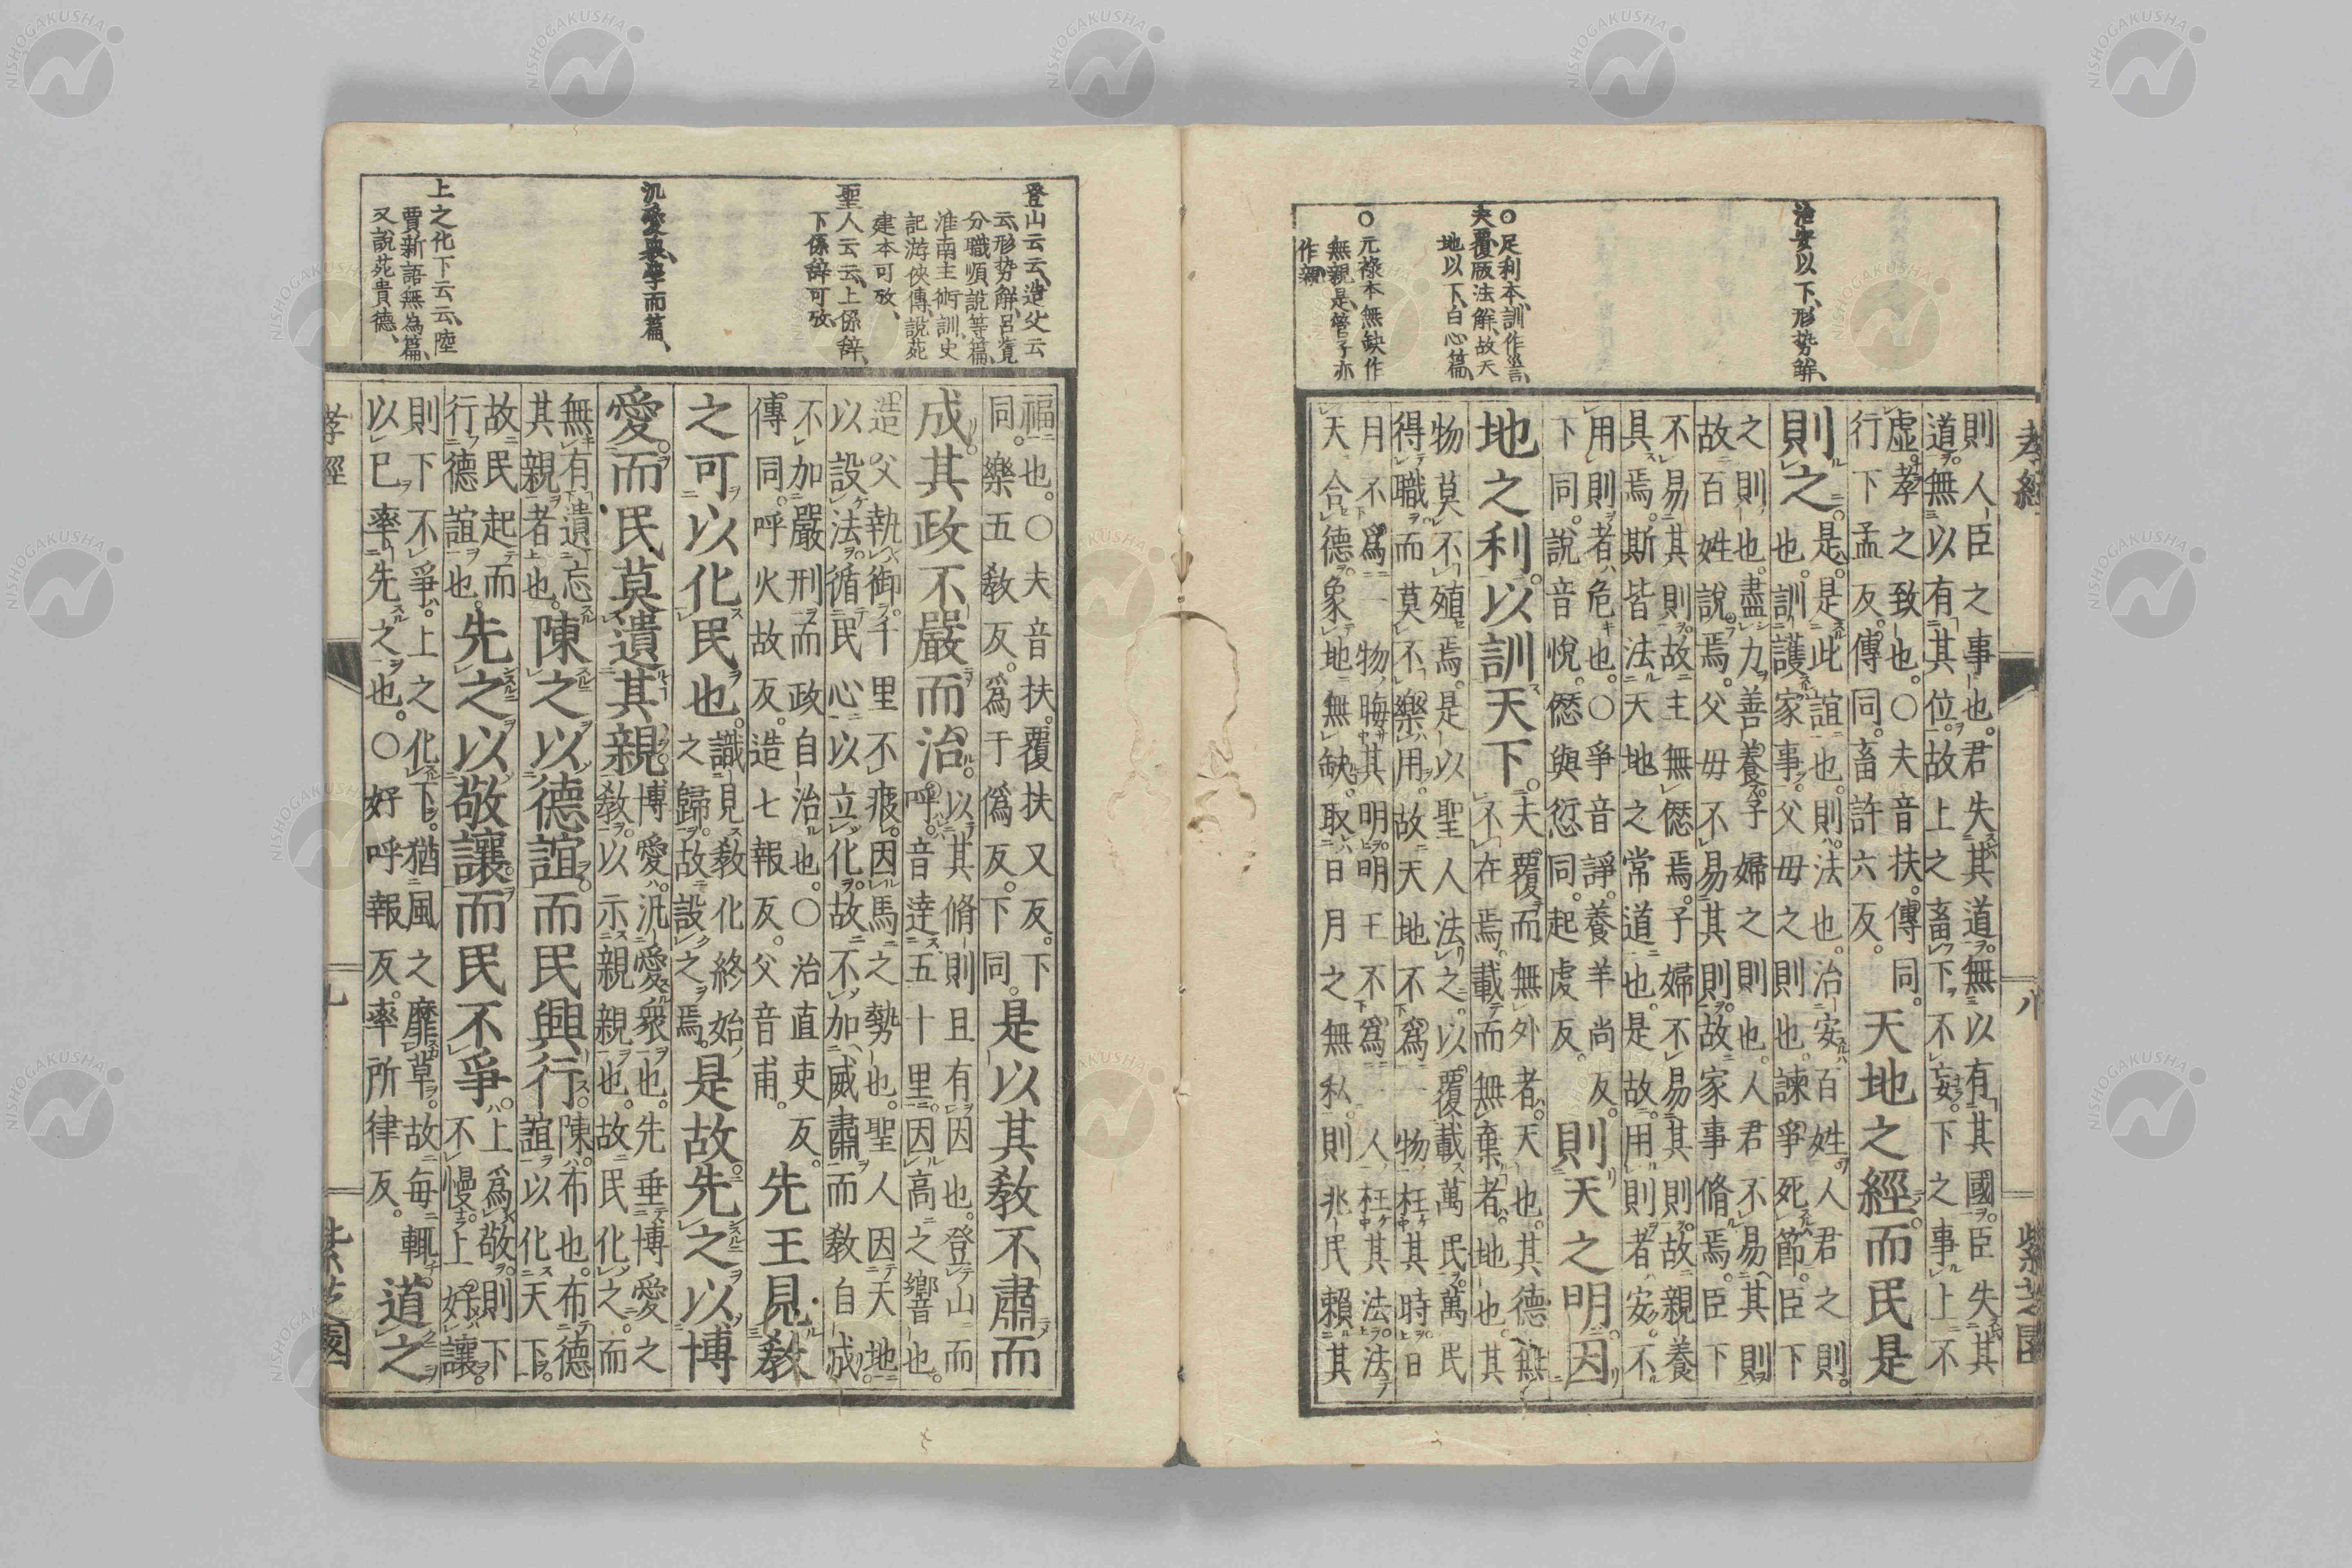 治安以下、形勢解、
夫覆版法解、故天
地以下、白心篇、
○元祿本無缺作
無親是、管子亦
作親
孝經
八
紫芝園
則人臣之事也。君失其道。無以有其國。臣失其
道。無以有其位。故上之畜下。不妄。下之事上不
虛。孝之致也。○夫音扶。傳同。
行下孟反。傳同。畜許六反。
天地之經。而民是
則之。
是。是此誼也。則法也。治安百姓人君之則。
也。訓護家事。父母之則也。諫爭死節。臣下
之則也。盡力善養。子婦之則也。人君不易其則
故百姓說焉。父母不易其則。故家事脩焉。臣下
不易其則。故主無僁焉。子婦不易其則。故親養
具焉。斯皆法天地之常道也。是故用則者安。不
用則者危也。○爭音諍。養羊尚反。
下同。說音悅。僁與愆同。起虔反。
則天之明。因
地之利。以訓天下。
夫覆而無外者。天也。其德無
不在焉。載而無棄者。地也。其
物莫不殖焉。是以聖人法之。以覆載萬民。萬民
得職而莫不樂用。故天地不爲一物枉其時。日
月不爲一物晦其明。明王不爲一人枉其法。法
天合德。象地無缺。取日月之無私則兆民賴其
登山云云、造父云
云、形勢解、呂覽
分職順說等篇、
淮南主術訓、史
記游俠傳、說苑
建本可攷、
聖人云云、上係辭、
下係辭可攷、
汎愛與學而篇、
上之化下云云、陸
賈新語無為篇、
又說苑貴德、
福也。○夫音扶。覆扶又反。下
同。樂五教反。爲于僞反。下同。
是以其教不肅而
成。其政不嚴而治。
以其脩則且有因也。登山而
呼。音達五十里。因高之響音也。
造父執御。千里不疲。因馬之勢也。聖人因天地
以設法。循民心以立化。故不加威肅而教自成。
不加嚴刑而政自治也。○治直吏反。
傳同。呼火故反。造七報反。父音甫。
先王見教
之可以化民也。
識見教化終始
之歸。故設之焉。
是故先之以博
愛。而民莫遺其親。
博愛。汎愛衆也。先垂博愛之
教。以示親親也。故民化之。而
無有遺忘
其親者也。
陳之以德誼。而民興行。
陳。布也。布德
誼以化天下。
故民起而
行德誼也。
先之以敬讓。而民不爭。
上爲敬。則下
不慢。上好讓。
則下不爭。上之化下。猶風之靡草。故每輒
以已率先之也。○好呼報反。率所律反。
道之
孝經
九
紫芝園